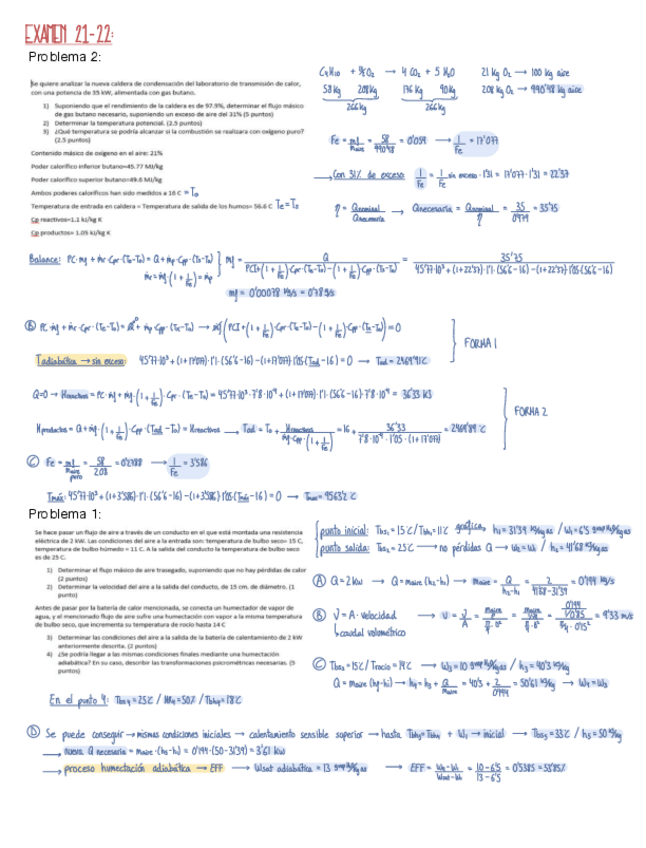 EXAMEN 21-22:
Problema 2:
Se quiere analizar la nueva caldera de condensación del laboratorio de transmisión de calor,
con una potencia de 35 kW, alimentada con gas butano.
1) Suponiendo que el rendimiento de la caldera es de 97.9%, determinar el flujo másico
de gas butano necesario, suponiendo un exceso de aire del 31% (5 puntos)
2) Determinar la temperatura potencial. (2.5 puntos)
3) ¿Qué temperatura se podría alcanzar si la combustión se realizara con oxígeno puro?
(2.5 puntos)
Contenido másico de oxígeno en el aire: 21%
Poder calorífico inferior butano=45.77 MJ/kg
Poder calorífico superior butano=49.6 MJ/kg
Ambos poderes caloríficos han sido medidos a 16 C = To
Temperatura de entrada en caldera = Temperatura de salida de los humos= 56.6 C Te=Ts
Cp reactivos=1.1 kJ/kg K
Cp productos= 1.05 kJ/kg K
C4H10 + 13/2 O2 → 4 CO2 + 5 H2O 21 kg O2 → 100 kg aire
58 kg 208 kg 176 kg 90 kg 208 kg O2 → 990'48 kg aire
266 kg 266 kg
Fe = mf/maire = 58/990'48 = 0'059 → 1/Fe = 17'077
→ Con 31% de exceso: 1/Fe = 1/Fe sin exceso · 1'31 = 17'077 · 1'31 = 22'37
η = Qnominal/Qnecesaria → Qnecesaria = Qnominal/η = 35/0'979 = 35'75
Balance: PC·mf + mr·Cpr·(Te-To) = Q + mp·Cpp·(Ts-To)
mr = mf(1+1/Fe) = mp
mf = Q/(PCI+(1+1/Fe)·Cpr·(Te-To)-(1+1/Fe)·Cpp·(Ts-To)) = 35'75/(45'77·10³+(1+22'37)·1'1·(56'6-16)-(1+22'37)·1'05·(56'6-16))
mf = 0'00078 kg/s = 0'78 g/s
B PC·mf + mr·Cpr·(Te-To) = Q + mp·Cpp·(Ts-To) → mf(PCI+(1+1/Fe)·Cpr·(Te-To)-(1+1/Fe)·Cpp·(Ts-To)) = 0
Tadiabática → sin exceso: 45'77·10³ + (1+17'077)·1'1·(56'6-16)-(1+17'077)·1'05(Tad-16) = 0 → Tad = 2469'91C
FORMA 1
Q=0 → Hreactivos = PC·mf + mf·(1+1/Fe)·Cpr·(Te-To) = 45'77·10³·7'8·10⁻⁴ + (1+17'077)·1'1·(56'6-16)·7'8·10⁻⁴ = 36'33 kJ
Hproductos = Q + mf·(1+1/Fe)·Cpp·(Tad-To) = Hreactivos → Tad = To + Hreactivos/(mf·Cpp·(1+1/Fe)) = 16 + 36'33/(7'8·10⁻⁴·1'05·(1+17'077)) = 2469'89 C
FORMA 2
C Fe = mf/maire puro = 58/208 = 0'2788 → 1/Fe = 3'586
Tmáx: 45'77·10³ + (1+3'586)·1'1·(56'6-16)-(1+3'586)·1'05(Tmáx-16) = 0 → Tmáx = 9563'2 C
Problema 1:
Se hace pasar un flujo de aire a través de un conducto en el que está montada una resistencia
eléctrica de 2 kW. Las condiciones del aire a la entrada son: temperatura de bulbo seco= 15 C,
temperatura de bulbo húmedo = 11 C. A la salida del conducto la temperatura de bulbo seco
es de 25 C.
1) Determinar el flujo másico de aire trasegado, suponiendo que no hay pérdidas de calor
(2 puntos)
2) Determinar la velocidad del aire a la salida del conducto, de 15 cm. de diámetro. (1
punto)
Antes de pasar por la batería de calor mencionada, se conecta un humectador de vapor de
agua, y el mencionado flujo de aire sufre una humectación con vapor a la misma temperatura
de bulbo seco, que incrementa su temperatura de rocío hasta 14 C
3) Determinar las condiciones del aire a la salida de la batería de calentamiento de 2 kW
anteriormente descrita. (2 puntos)
4) ¿Se podría llegar a las mismas condiciones finales mediante una humectación
adiabática? En su caso, describir las transformaciones psicrométricas necesarias. (5
puntos)
punto inicial: Tbs1 = 15C/Tbh1 = 11C gráfica h1 = 31'39 kJ/kgas / W1 = 6'5 gr H2O/kgas
punto salida: Tbs2 = 25C → no pérdidas Q → W2 = W1 / h2 = 41'68 kJ/kgas
A Q = 2kW → Q = maire(h2-h1) → maire = Q/(h2-h1) = 2/(41'68-31'39) = 0'194 kg/s
B V = A·velocidad → v = = 9'33 m/s
caudal volumétrico
C Tbs3 = 15C / Trocío = 14C → W3 = 10 gr H2O/kgas / h3 = 40'3 kJ/kg
Q = maire(h4-h3) → h4 = h3 + Q/maire = 40'3 + 2/0'194 = 50'61 kJ/kg → W4 = W3
En el punto 4: Tbs4 = 25C / HR4 = 50% / Tbh4 = 18C
D Se puede conseguir → mismas condiciones iniciales → calentamiento sensible superior → hasta Tbh5 = Tbh4 + W1 → inicial → Tbs5 = 33C / h5 = 50 kJ/kg
→ nueva Q necesaria = maire·(h5-h1) = 0'194·(50-31'39) = 3'61 kW
→ proceso humectación adiabática → EFF → Wsat adiabática = 13 gr H2O/kgas → EFF = (W4-W1)/(Wsat-W1) = (10-6'5)/(13-6'5) = 0'5385 = 53'85%